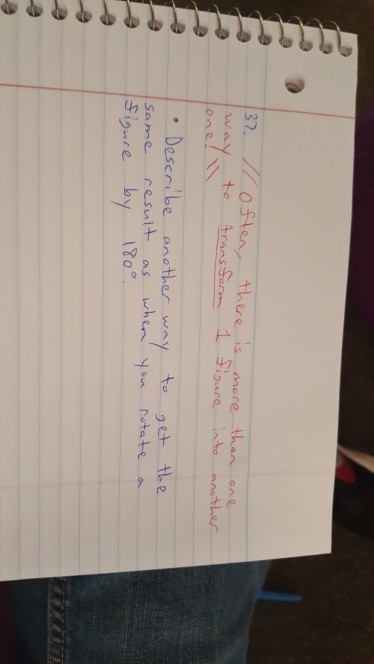 37. // Often, there is more than one
way to transform 1 figure into another
one! \\
• Describe another way to get the
same result as when you rotate a
figure by 180°.